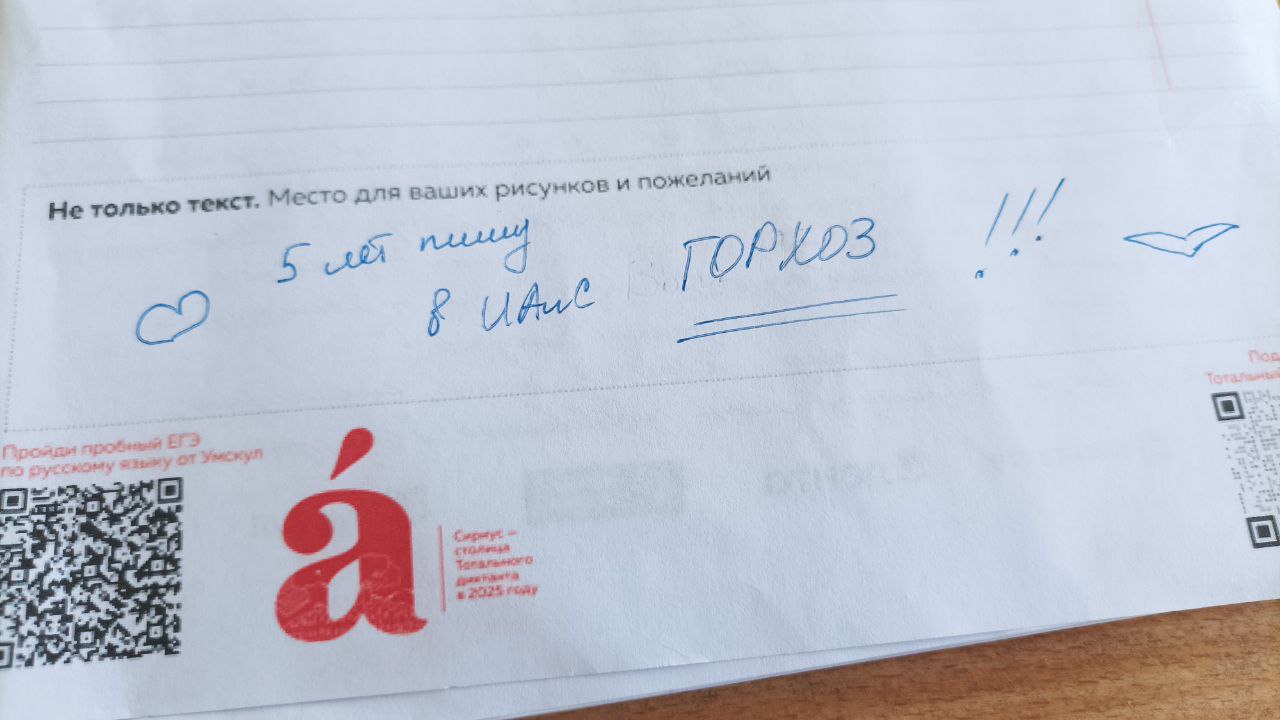 Не только текст. Место для ваших рисунков и пожеланий
5 лет пишу
в ИАиС ГОРХОЗ !!!
Пройди пробный ЕГЭ
по русскому языку от Умскул
á
Сириус —
столица
Тотального
диктанта
в 2025 году
Под
Тотальный